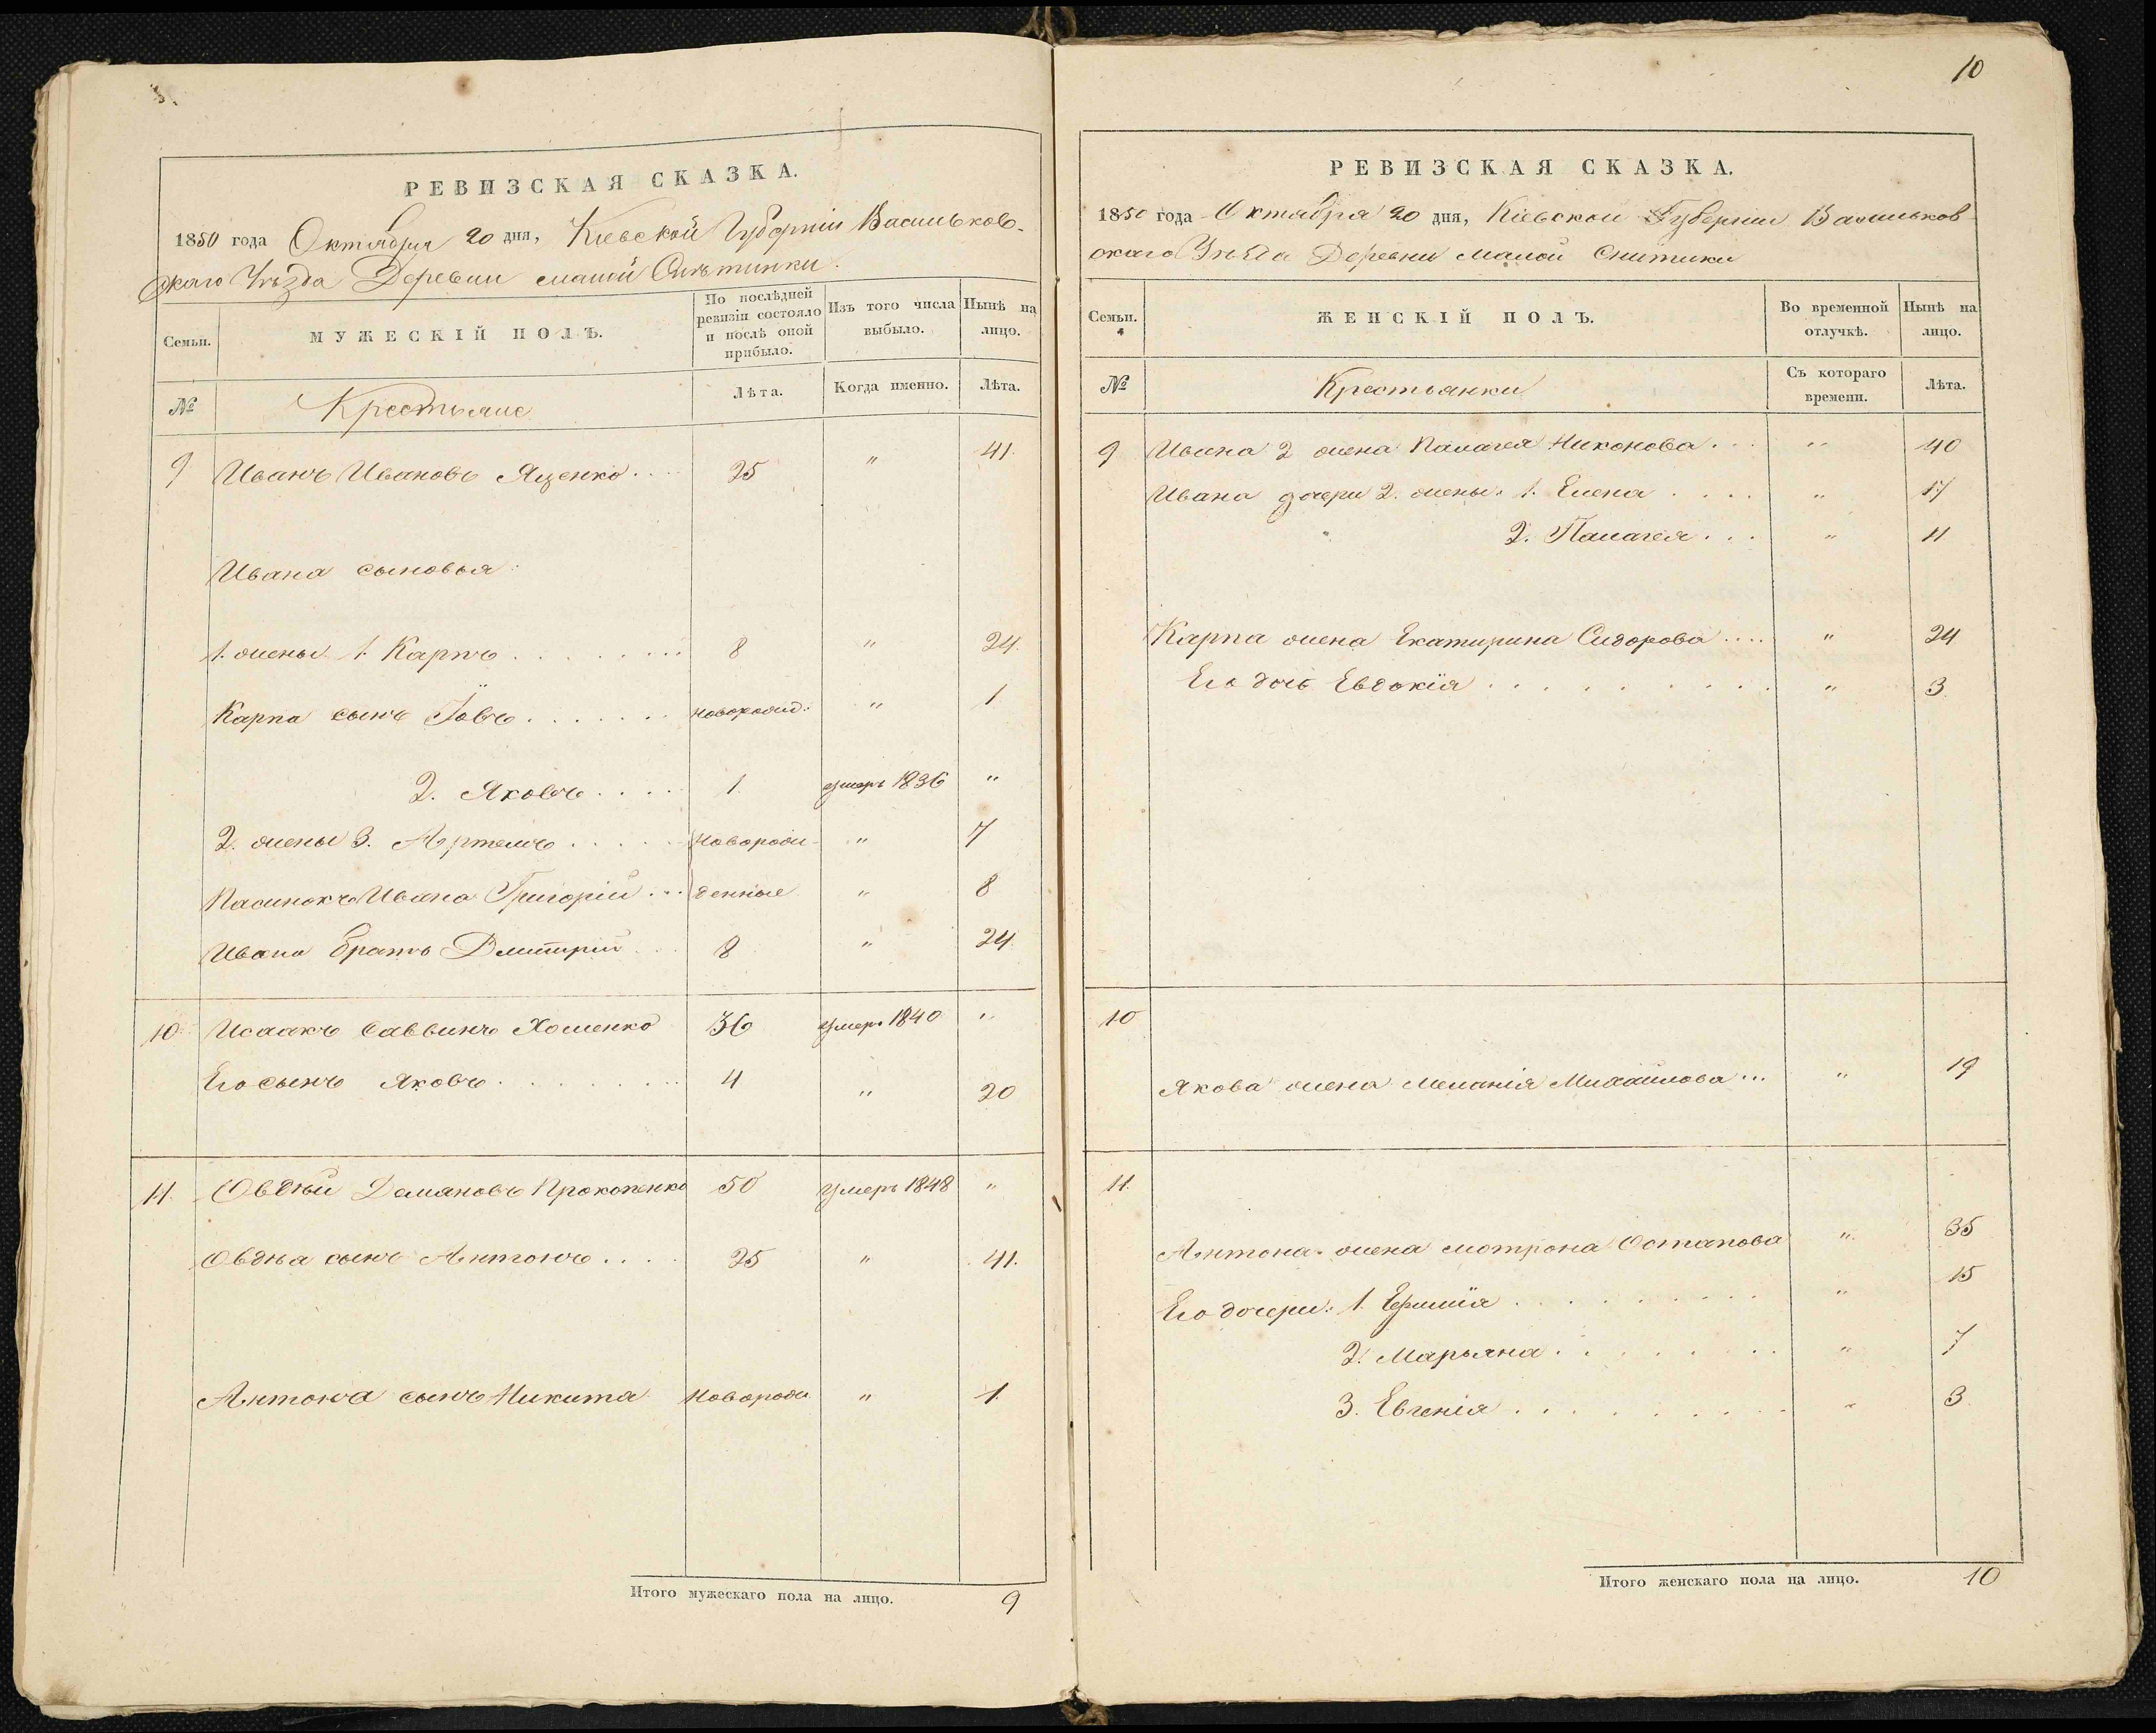 РЕВИЗСКАЯ СКАЗКА.
1850 года Октября 20 дня, Кіевской Губерніи Васильков-
скаго Уѣзда Деревни малой Снѣтинки.
Семьи.
МУЖЕСКІЙ ПОЛЪ.
По послѣдней ревизіи состояло и послѣ оной прибыло.
Изъ того числа выбыло.
Нынѣ на лицо.
№
Крестьяне
Лѣта.
Когда именно.
Лѣта.
9 Иванъ Ивановъ Яценко.... 25 " 41.
Ивана сыновья:
1. жены 1. Карпъ........ 8 " 24.
Карпа сынъ Іовъ....... новорожд: " 1
2. Яковъ.... 1. умеръ 1836 "
2. жены 3. Артемъ..... Новорож- " 7
Пасинокъ Ивана Григорій... денные " 8
Ивана братъ Дмитрій... 8 " 24.
10 Исаакъ Саввинъ Хоменко 36 умеръ 1840 "
Его сынъ Яковъ......... 4 " 20
11. Овдѣй Демяновъ Прокопенко 50 умеръ 1848 "
Овдѣя сынъ Антонъ.... 25 " 41.
Антона сынъ Никита Новорож " 1.
Итого мужескаго пола на лицо. 9
10
РЕВИЗСКАЯ СКАЗКА.
1850 года Октября 20 дня, Кіевской Губерніи Васильков
скаго Уѣзда Деревни Малой Снитики
Семьи.
ЖЕНСКІЙ ПОЛЪ.
Во временной отлучкѣ.
Нынѣ на лицо.
№
Крестьянки
Съ котораго времени.
Лѣта.
9 Ивана 2 жена Палагея Никонова... " 40
Ивана дочери 2. жены: 1. Елена.... " 17
2. Палагея... " 11
Карпа жена Екатирина Сидорова.... " 24
Его дочь Евдокія.......... " 3
10
Якова жена Меланія Михайлова... " 19
11.
Антона жена мотрона Остапова " 35
Его дочери: 1. ......... " 15
2. Марьяна........ " 7
3. Евгенія......... " 3
Итого женскаго пола на лицо. 10